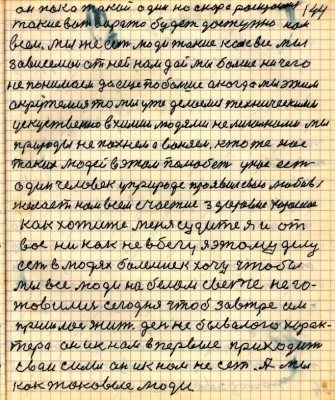 он пока такой один но скоро расцвет 144
такие вот ворота будет доступно нам
всем, мы же есть люди такие как все мы
зависемы от ней нам дай мы больше ничего
не понимаем да еще побольше а когда мы этим
окружимся то мы уже делаемся техническими
искуственно в химии людями не милинками мы
природы не пахнем а воняем, кто же нас
таких людей в этом поможет у нас есть
один человек у природе проявил свою любовь,
желает нам всем счастие здоровие хорошее
как хотите меня судите я и от
вас ни как не вбегу я этому делу
есть в людях болеине хочу чтобы
мы все люди на белом свете не го-
товились сегодня чтоб завтре им-
пришлося жит. ден не бывалого харак-
тера он их нам впервые приходит
свои сили он их нам не сет. А мы
как таковые люди